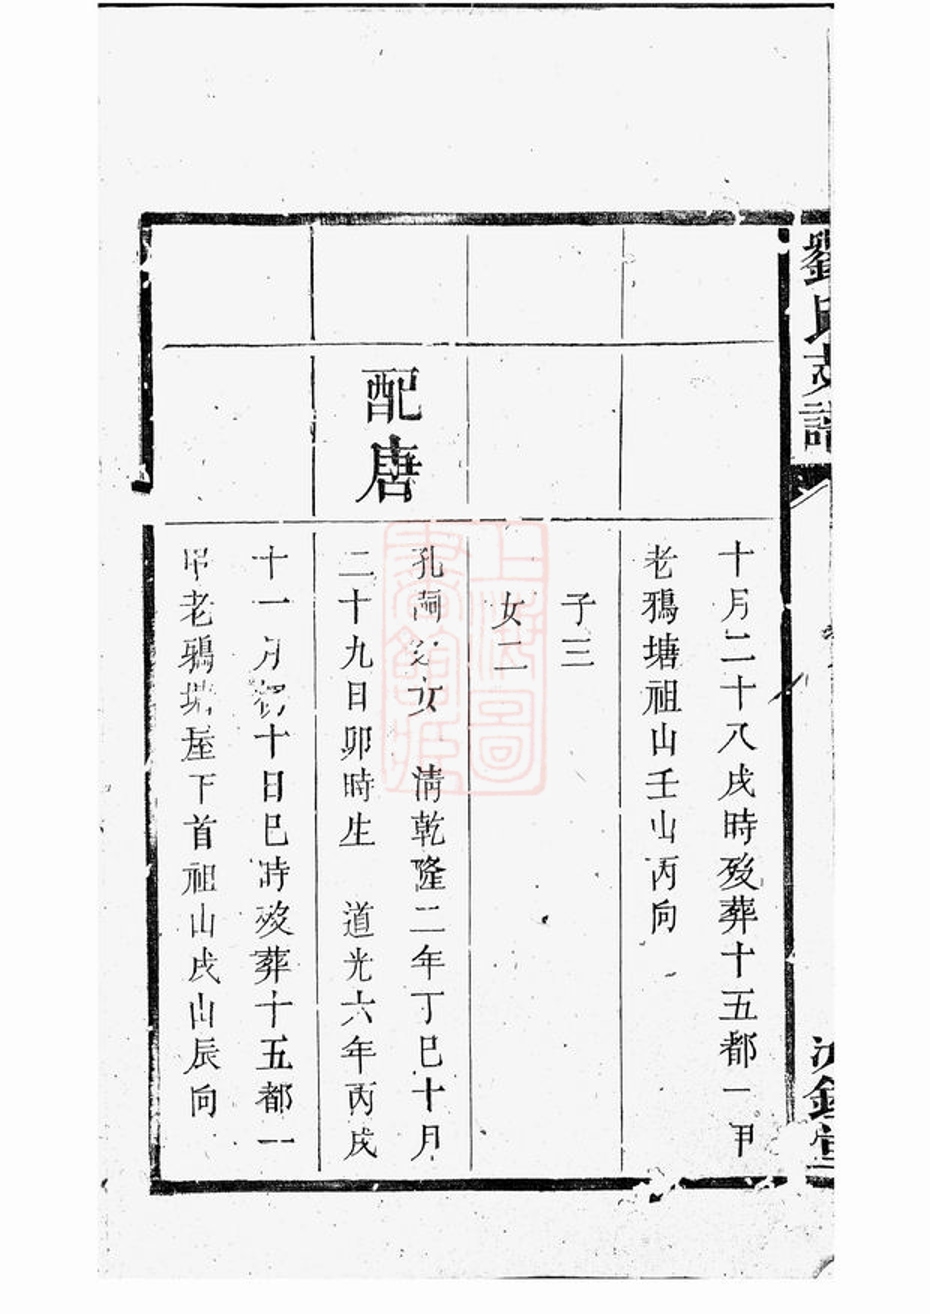 劉氏支譜
十月二十八戌時歿葬十五都一甲
老鴉塘祖山壬山丙向
子三
女二
配唐
孔 女 清乾隆二年丁巳十月
二十九日卯時生 道光六年丙戌
十一月初十日巳時歿葬十五都一
甲老鴉塘屋下首祖山戌山辰向
上海圖書館藏